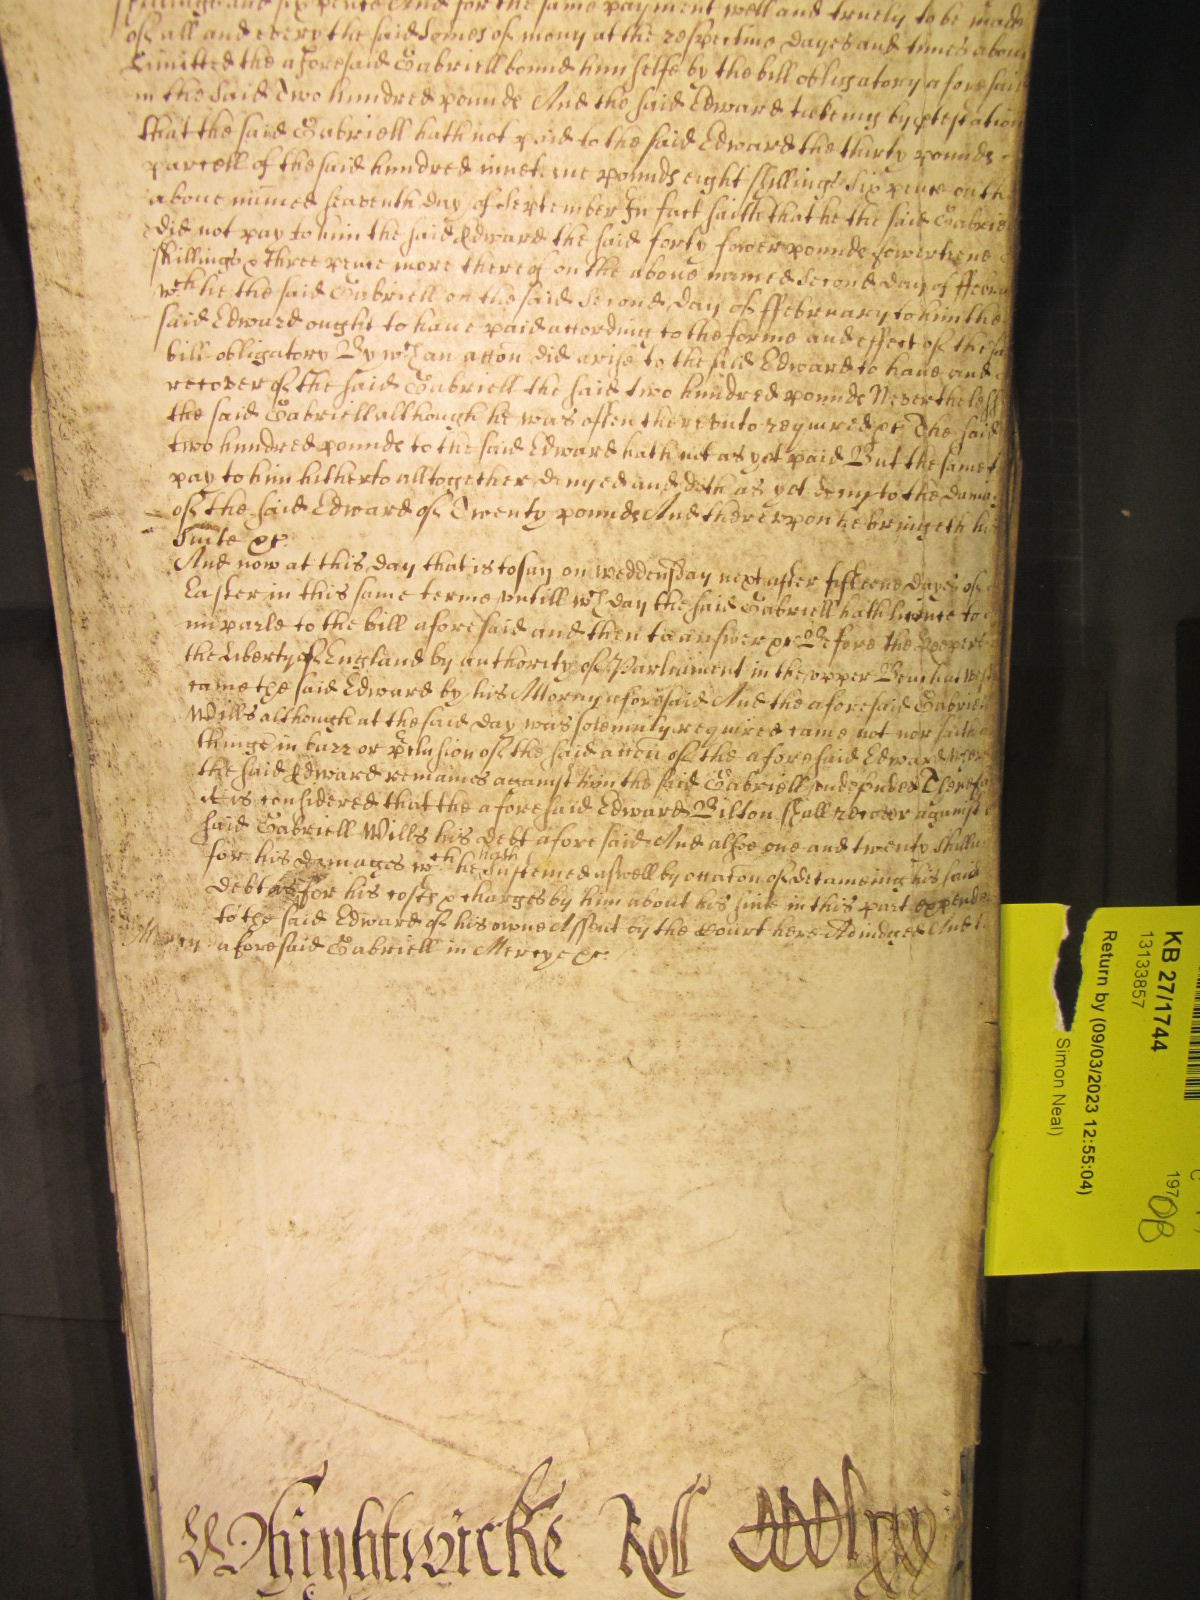 shillings and six pence And for the same payment well and truely to be made
of all and every the said Somes of mony at the respective dayes and times above
Limitted the aforesaid Gabriell bound himselfe by the bill obligatory aforesaid
in the said Two hundred pounds And the said Edward takeing by ptestation
that the said Gabriell hath not paid to the said Edward the thirty pounds
parcell of the said hundred pounds eight shillings six pence on th
above named seaventh day of September In fact saith that he the said Gabrie
did not pay to him the said Edward the said forty fower pounds fowerteene
shillings & three pence more thereof on the above named second day of ffebru
wch he the said Gabriell on the said second day of ffebruary to him the
said Edward ought to have paid according to the forme and effect of the sa
bill obligatory By wch an accon did arise to the said Edward to have and
recover of the said Gabriell the said two hundred pounds Neverthelesse
the said Gabriell although he was often thereunto required &c The said
two hundred pounds to the said Edward hath not as yet paid But the same t
pay to him hitherto alltogether denyed and doth as yet deny to the dama
of the said Edward of Twenty pounds And thereupon he bringeth his
Suite &c
And now at this day that is to say on weddensday next after fifteene dayes of
Easter in this same terme untill wch day the said Gabriell hath licence to
imparle to the bill aforesaid and then to answer &c Before the Keepers
the Liberty of England by authority of Parliament in the upper Bench at West
came the said Edward by his Attorny aforesaid And the aforesaid Gabriell
Wills although at the said day was solemnly required came not nor saith a
thinge in barr or pclusion of the said accon of the aforesaid Edward
the said Edward remaines against him the said Gabriell undefended Therefo
it is considered that the aforesaid Edward Bilton shall recover against
said Gabriell Wills his debt aforesaid And alsoe one and twenty shillin
for his damages wch he hath susteined aswell by occasion of detaineing his said
debt as for his costs & charges by him about his suite in this part expende
to the said Edward of his owne Assent by the Court here Adiudged And t
Mercy aforesaid Gabriell in Mercy &c
Whightwicke Roll
KB 27/1744
13133857
Return by (09/03/2023 12:55:04)
Simon Neal)